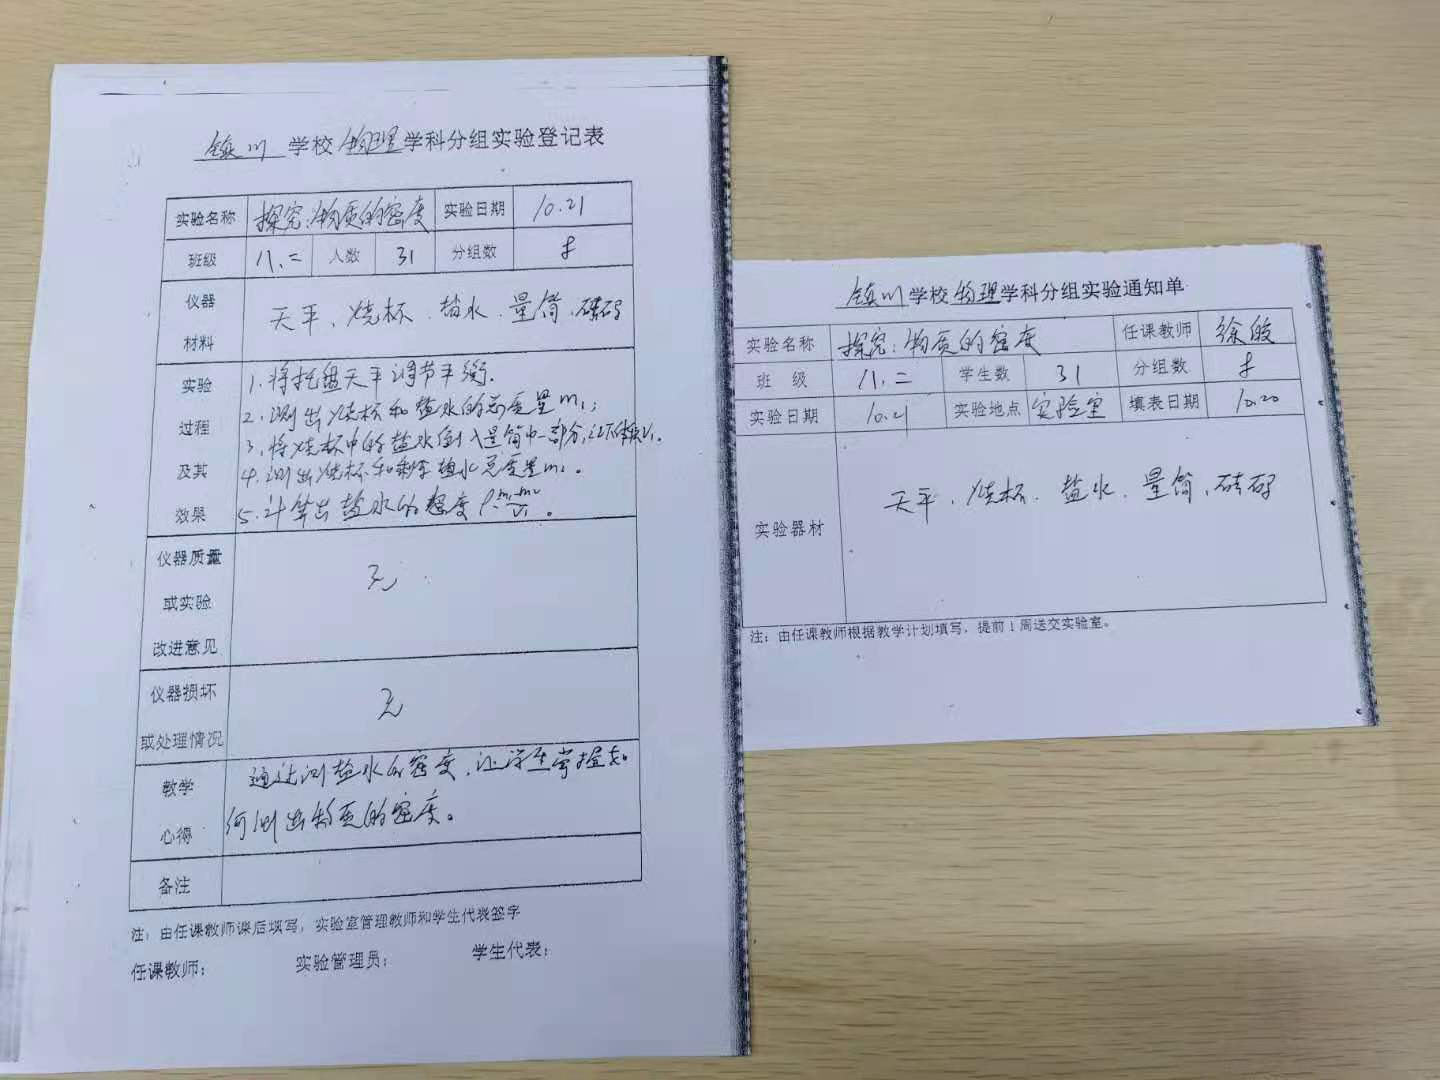 镇川 学校 物理 学科分组实验登记表
实验名称 探究:物质的密度 实验日期 10.21
班级 八.二 人数 31 分组数 8
仪器
材料
天平、烧杯、盐水、量筒、砝码
实验
过程
及其
效果
1、将托盘天平调节平衡.
2、测出烧杯和盐水的总质量m₁;
3、将烧杯中的盐水倒入量筒中一部分,
4、测出烧杯和剩余盐水总质量m₂。
5、计算出盐水的密度
仪器质量
或实验
改进意见
无
仪器损坏
或处理情况
无
教学
心得
通过测盐水的密度,让学生掌握如
何测出物质的密度。
备注
注:由任课教师课后填写,实验室管理教师和学生代表签字
任课教师: 实验管理员: 学生代表:
镇川 学校 物理 学科分组实验通知单
实验名称 探究:物质的密度 任课教师 徐皎
班 级 八.二 学生数 31 分组数 8
实验日期 10.21 实验地点 实验室 填表日期 10.20
实验器材
天平、烧杯、盐水、量筒、砝码
注:由任课教师根据教学计划填写,提前1周送交实验室。